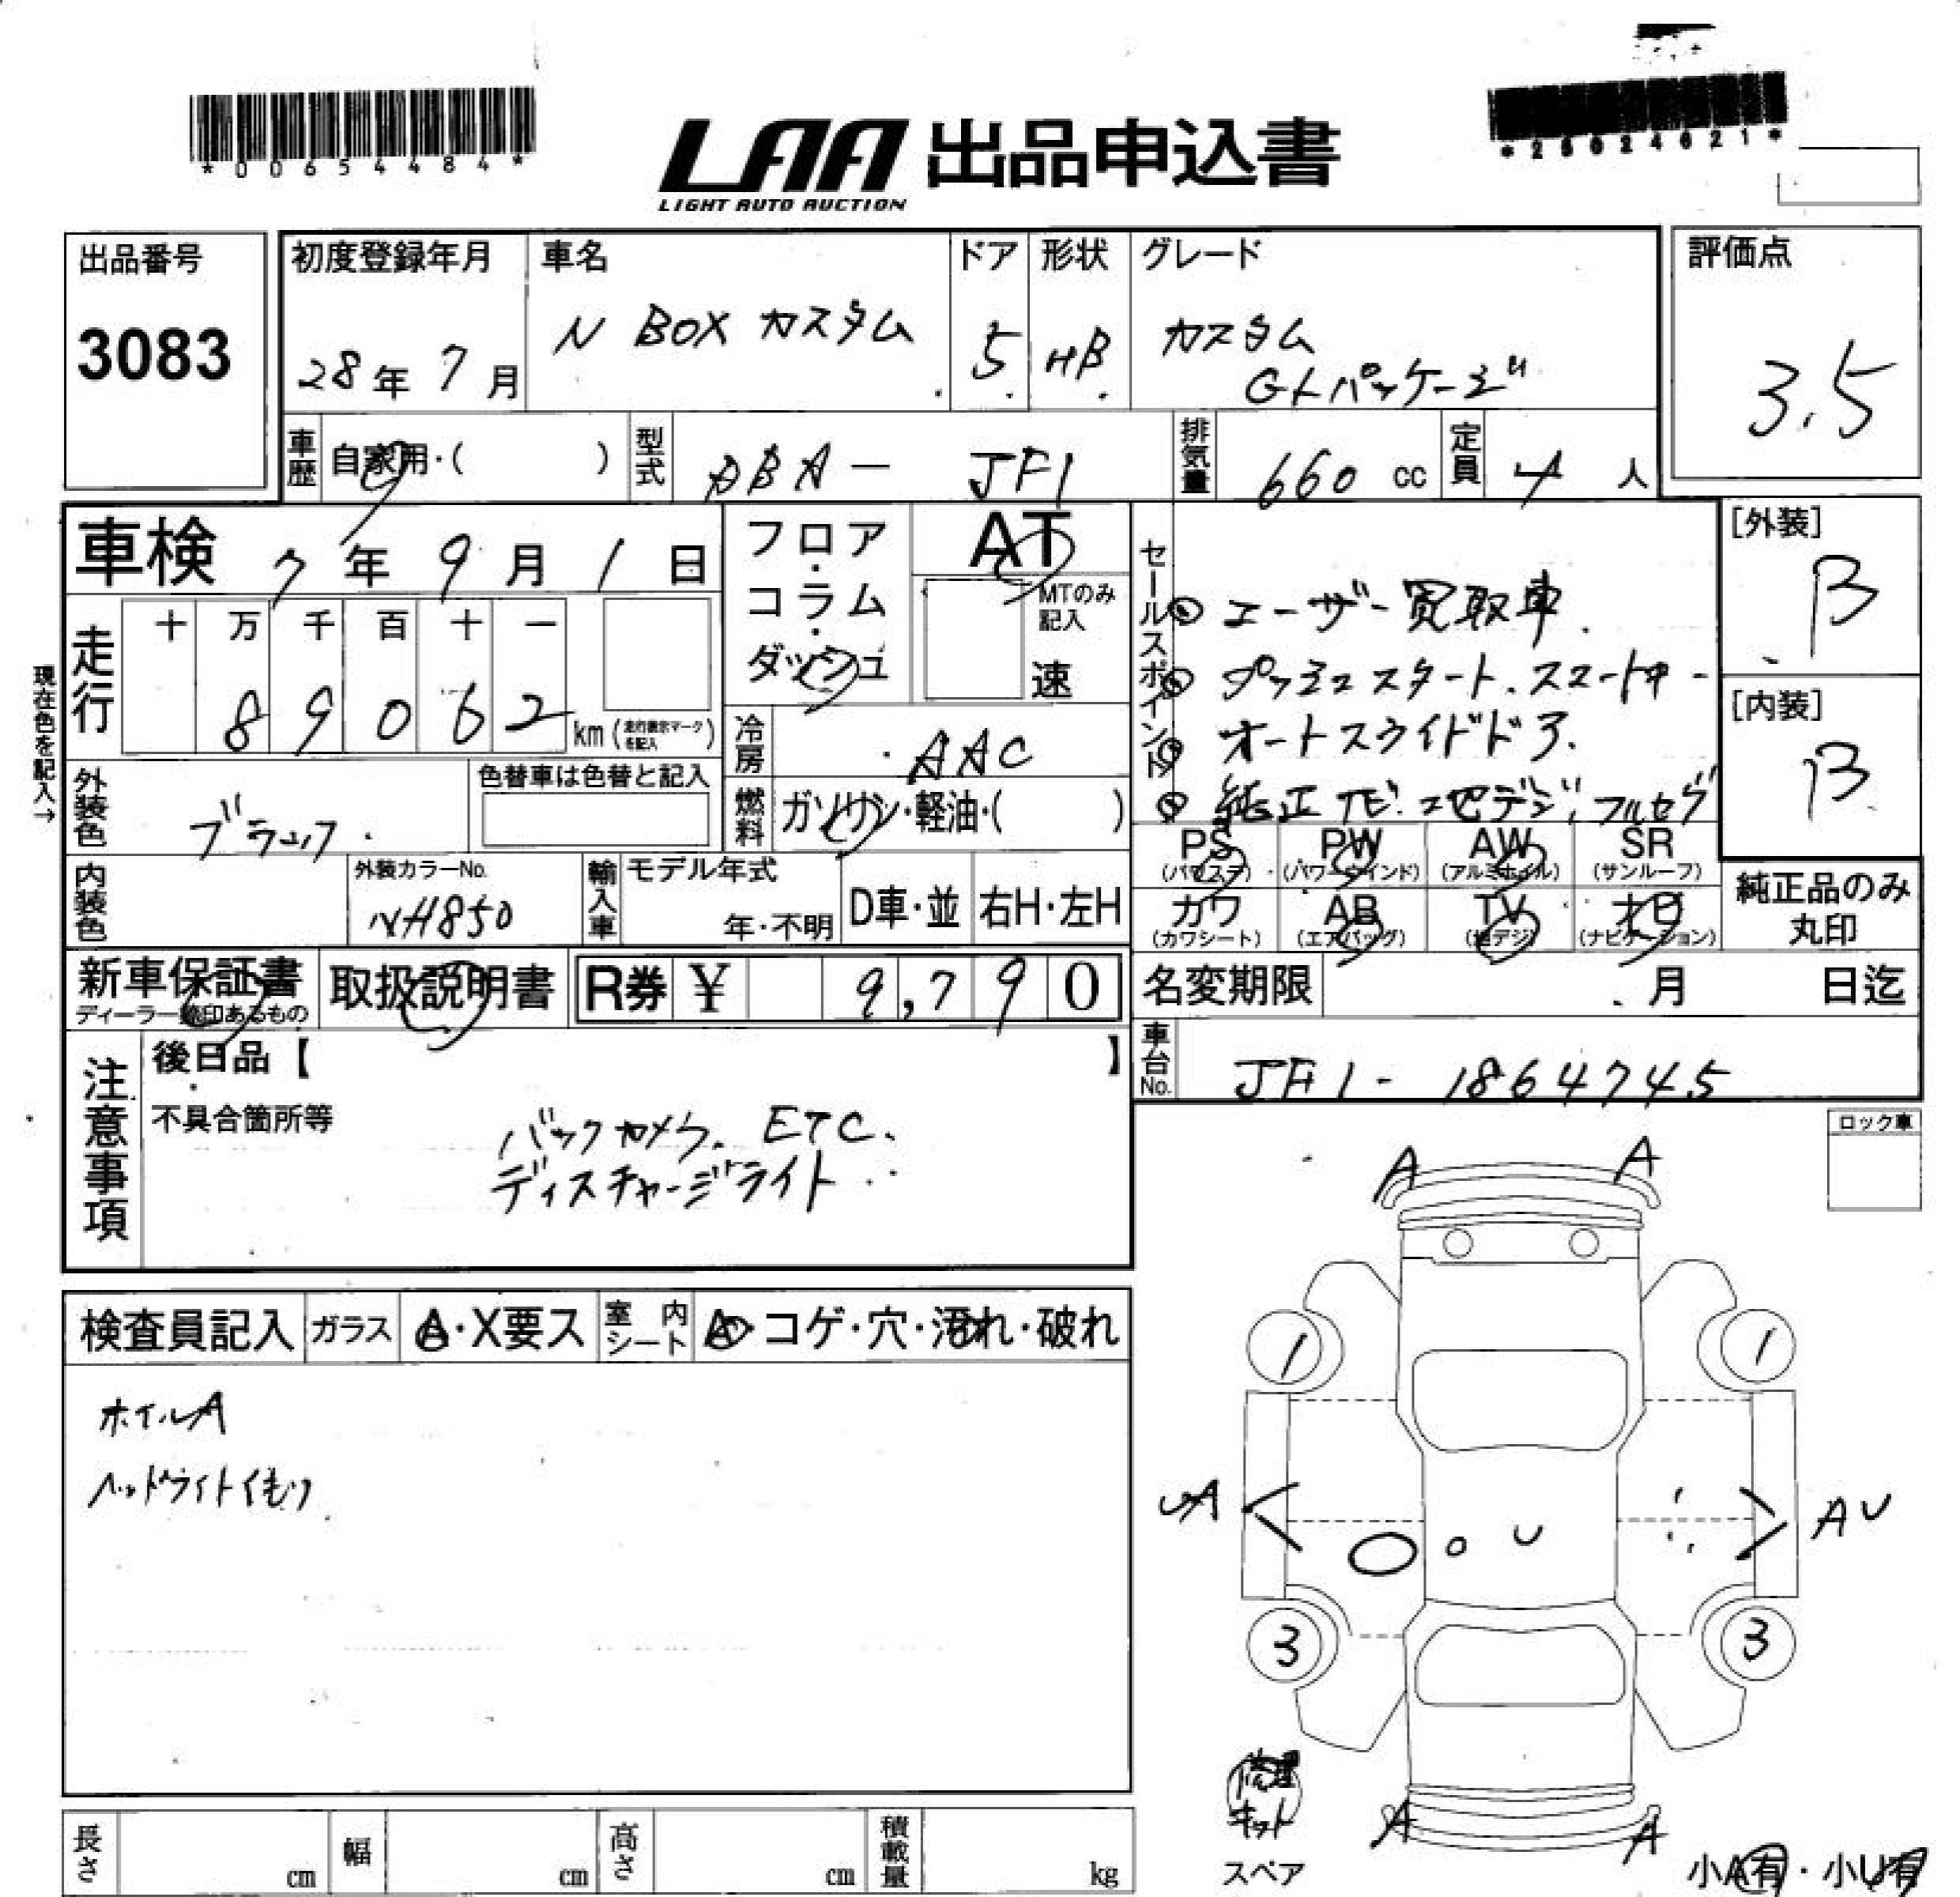 *00654484*
LAA 出品申込書
LIGHT AUTO AUCTION
*25024621*
出品番号
3083
初度登録年月
28年7月
車名
N BOX カスタム
ドア
5
形状
HB
グレード
カスタム
GLパッケージ
評価点
3.5
車歴
自家用・( )
型式
DBA- JF1
排気量
660 cc
定員
4 人
車検 7年9月1日
フロア・コラム・ダッシュ
AT
MTのみ記入
速
セールスポイント
ユーザー買取車.
プッシュスタート.スマートキー
オートスライドドア.
純正ナビ.地デジ,フルセグ
[外装]
B
[内装]
B
現在色を記入→
走行
十 万 千 百 十 一
8 9 0 6 2 km (走行表示マークを記入)
冷房
AAC
外装色
ブラック.
色替車は色替と記入
燃料
ガソリン・軽油・( )
PS (パワステ)
PW (パワーウインド)
AW (アルミホイル)
SR (サンルーフ)
内装色
外装カラーNo.
NH850
輸入車
モデル年式
年・不明
D車・並
右H・左H
カワ (カワシート)
AB (エアバッグ)
TV (地デジ)
ナビ (ナビゲーション)
純正品のみ
丸印
新車保証書
ディーラー捺印あるもの
取扱説明書
R券 ¥ 9,790
名変期限 月 日迄
注意事項
後日品【 】
車台No.
JF1- 1864745
不具合箇所等
バックカメラ. ETC.
ディスチャージライト
ロック車
A A
検査員記入
ガラス
A・X要ス
室内シート
A・コゲ・穴・汚れ・破れ
ホイルA
ヘッドライトくもり
1 1
UA
U
AU
3 3
修理
キット
スペア
A A
小A有・小U有
長さ cm
幅 cm
高さ cm
積載量 kg